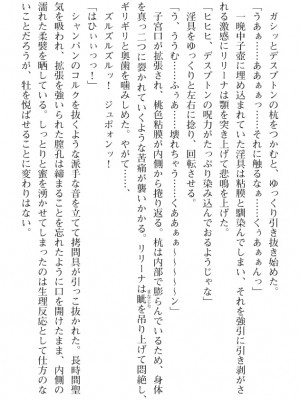 ガシッとデスプトンの杭をつかむと、ゆっくり引き抜き始めた。
「うあぁ……あぁぁっ……それに触るなぁ……くうあぁぁんっ」
一晩中子壺に埋まっていた淫具は粘膜と馴染んでしまい、それを強引に引き剥がさ
れる激感にリリーナは顎を突き上げて悲鳴を上げた。
「ヒヒヒ、デスプトンの呪力がたっぷり染み込んでおるようじゃな」
淫具をゆっくりと左右に捻り、回転させる。
「う、ううむ……ふうあ……壊れちゃう……くあああぁ～～～～ン」
子宮口が拡張され、桃色粘膜が内側から捲り返る。杭は内部で膨らんでいるため、身体
を真っ二つに裂かれていくような苦痛が襲いかかる。リリーナは眦を吊り上げて悶絶し、
ギリギリと奥歯を噛みしめた。やが……、
ズルズルズルッ！　ジュポォンッ！
「はひぃぃっっ！」
シャンパンのコルクを抜くような派手な音を立てて拷問具が引っこ抜かれた。長時間聖
気を吸われ、拡張を強いられた膣孔は締まることを忘れたように口を開けたまま、内側の
柔襞を晒している。しっとりと蜜を湧かせてしまったのは生理反応として仕方のな
いことだろうが、牡を悦ばせることに変わりはない。